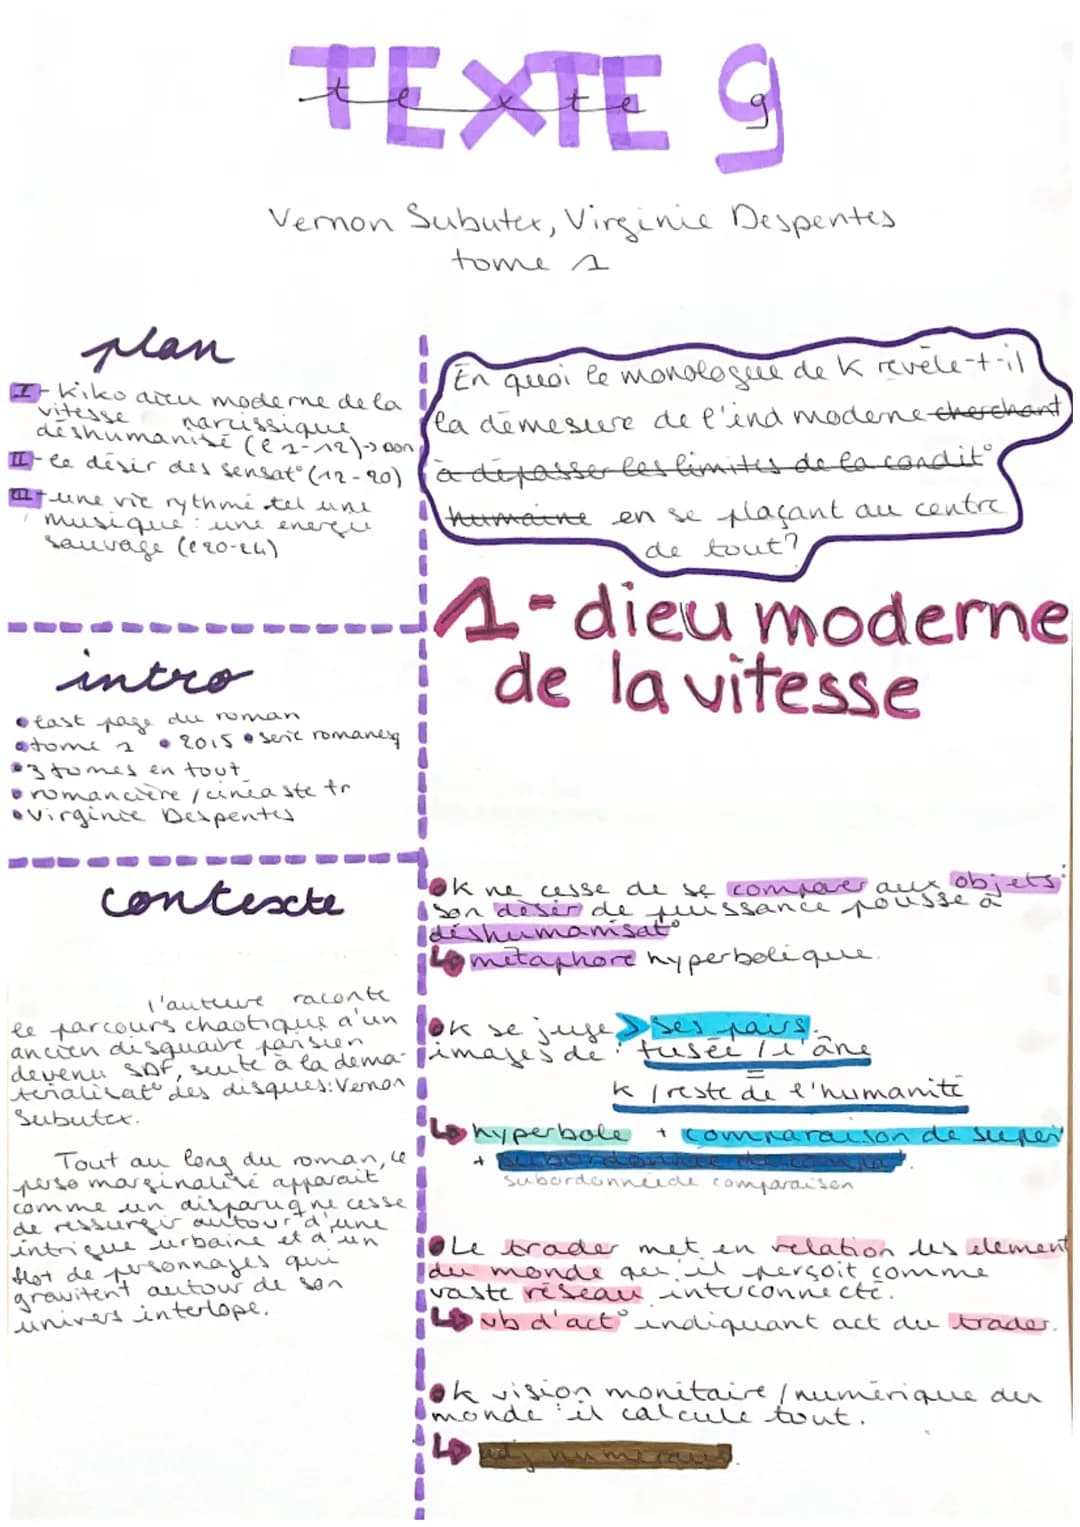 TEXTE 9
texte 9
Vernon Subutex, Virginie Despentes
tome 1
plan
I- Kiko dieu moderne de la
vitesse narcissique
déshumanisé (l 1-12)
II- le désir des sensat° (12-20)
III- une vie rythmé tel une
musique : une energie
sauvage (l 20-24)
En quoi le monologue de K revèle-t-il
la démesure de l'ind moderne cherchant
à dépasser les limites de la condit°
humaine en se plaçant au centre
de tout?
intro
• last page du roman
• tome 1 • 2015 • serie romanesq
• 3 tomes en tout
• romancière / cinéaste fr
• Virginie Despentes
1- dieu moderne
de la vitesse
contexte
l'auteure raconte
le parcours chaotique d'un
ancien disquaire parisien
devenu SDF, suite à la dema-
térialisat° des disques: Vernon
Subutex.
Tout au long du roman, le
perso marginalisé apparait
comme un disparu q ne cesse
de ressurgir autour d'une
intrigue urbaine et d'un
flot de personnages qui
gravitent autour de son
univers interlope.
• K ne cesse de se comparer aux objets:
son désir de puissance pousse à
déshumanisat°
métaphore hyperbolique.
• K se juge > ses pairs.
images de : fusée / l'âne
=
K / reste de l'humanité
hyperbole + comparaison de super
+ subordonnée de compa
subordonnée de comparaison
• Le trader met en relation les element
du monde qu'il perçoit comme
vaste réseau interconnecté.
vb d'act° indiquant act du trader.
• K vision monétaire / numérique du
monde il calcule tout.
adj numéraux.